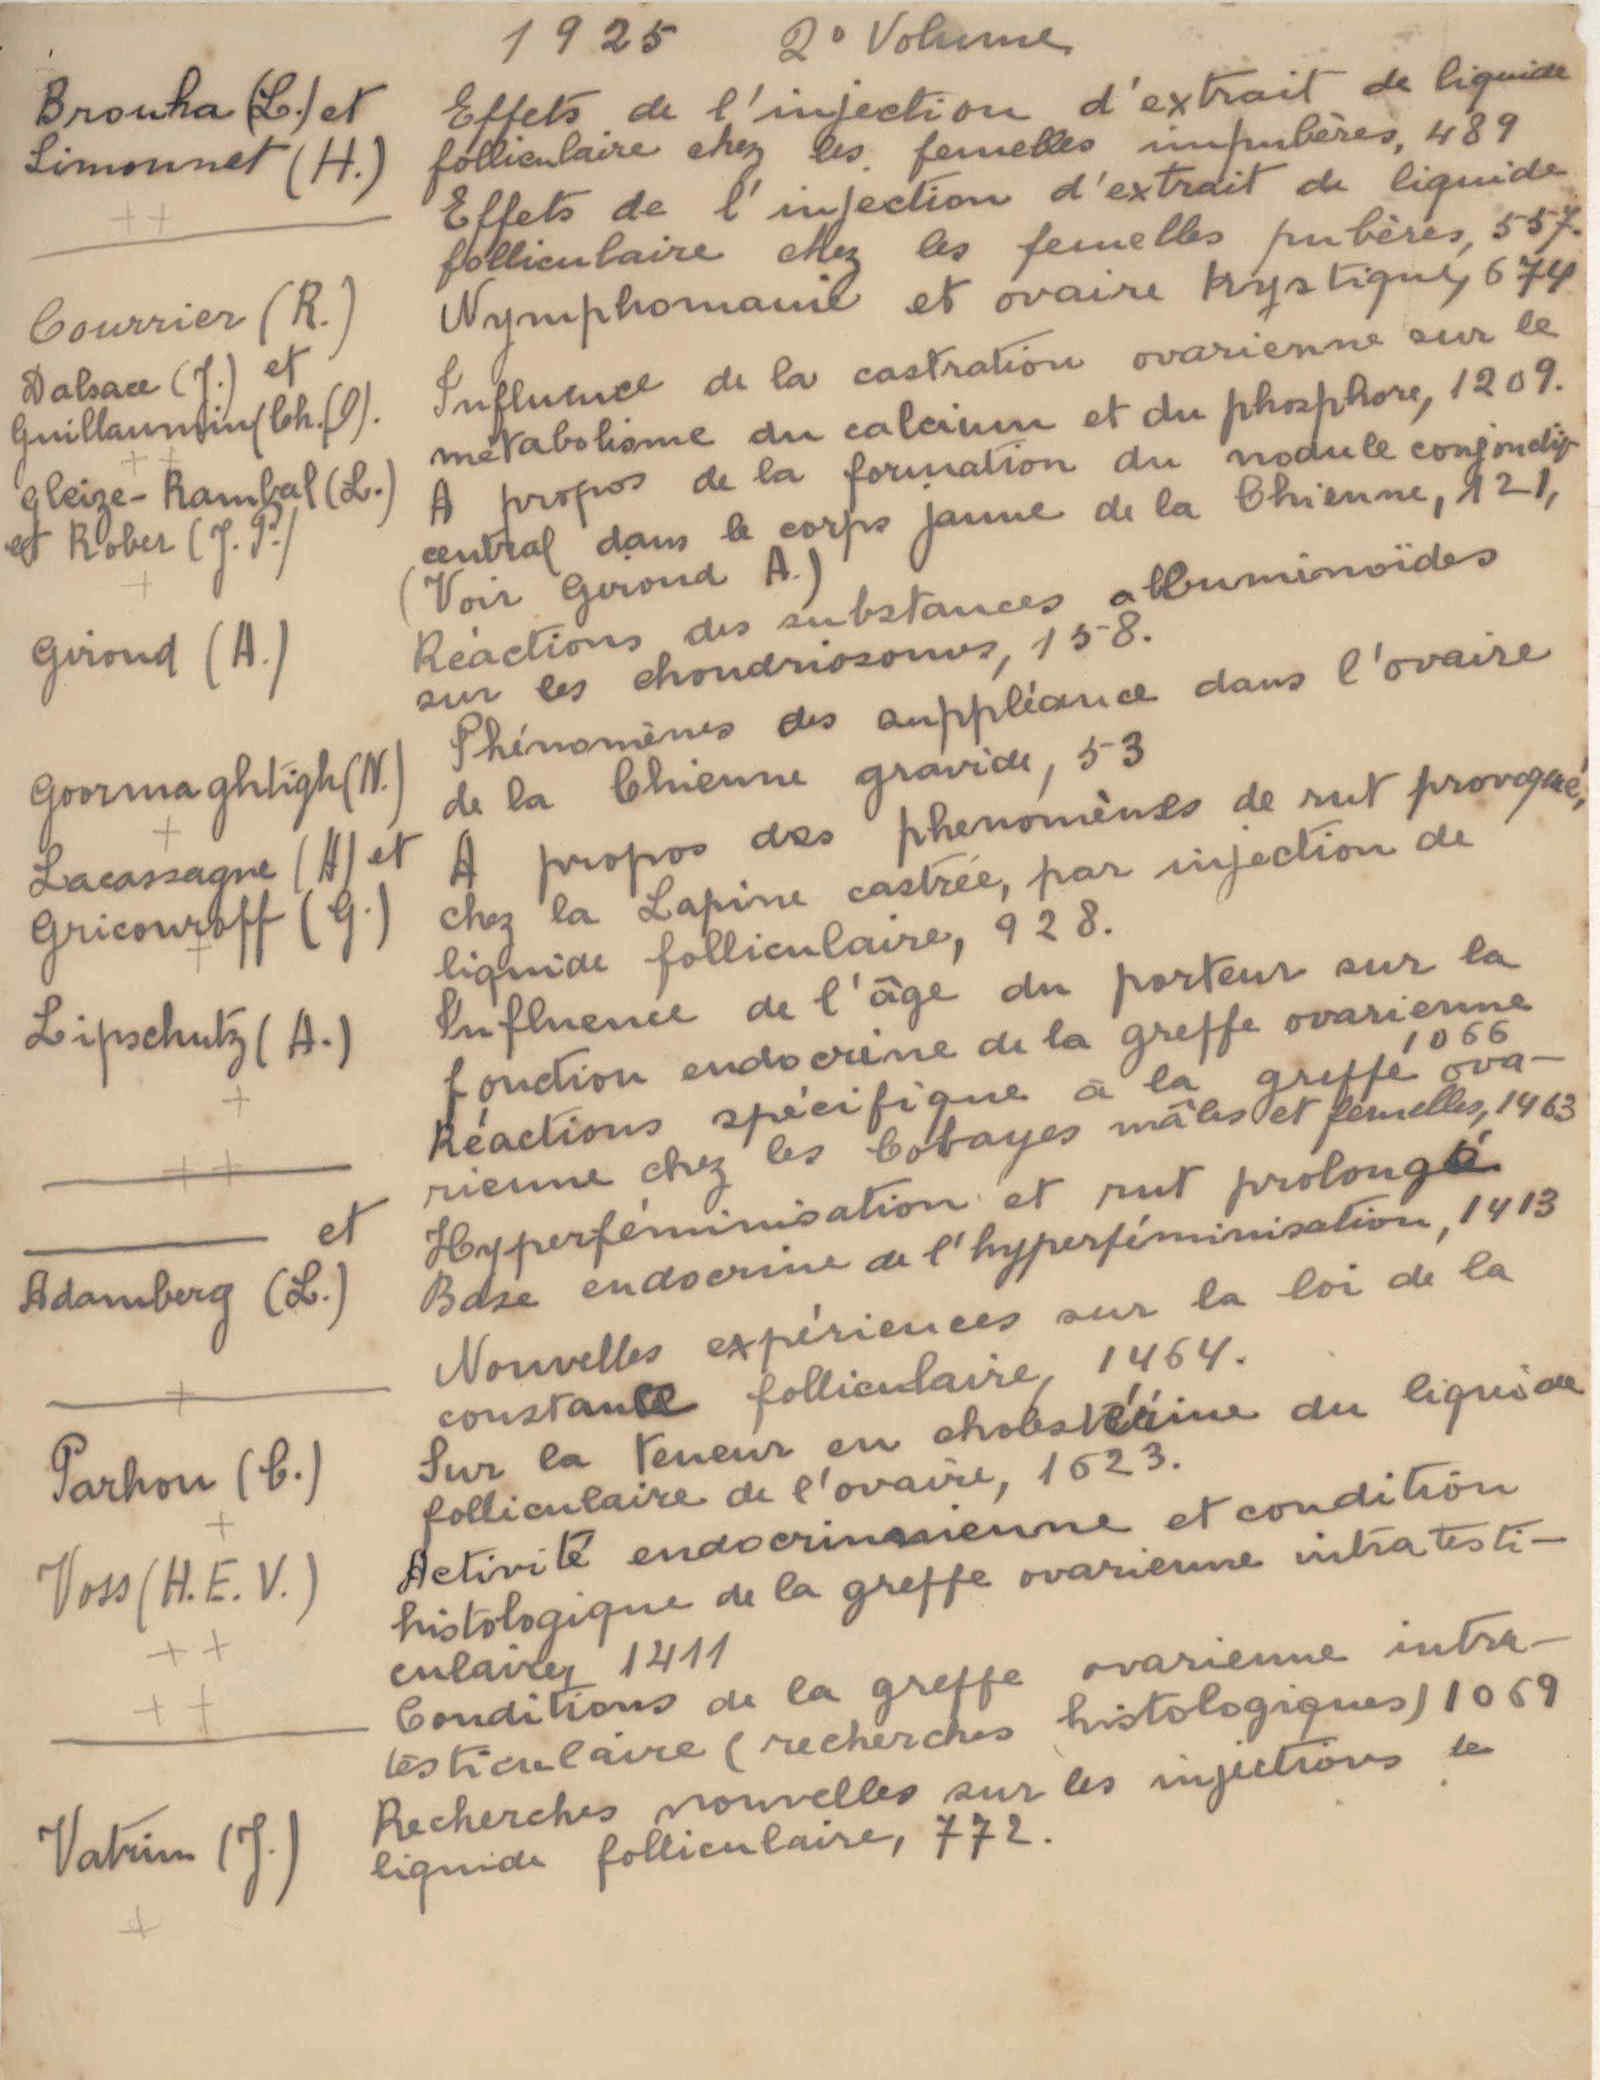 1925 2º Volume
Brouha (L.) et Effets de l'injection d'extrait de liquide
Limonnet (H.) folliculaire chez les femelles impubères, 489
++ Effets de l'injection d'extrait de liquide
folliculaire chez les femelles pubères, 557.
Courrier (R.) Nymphomanie et ovaire kystique, 674
Dalsace (J.) et Influence de la castration ovarienne sur le
Guillaumin (Ch. O). métabolisme du calcium et du phosphore, 1209.
++
Gleize-Rambal (L.) A propos de la formation du nodule conjonctif
et Rober (J. P.) central dans le corps jaune de la Chienne, 121,
+ (Voir Giroud A.)
Giroud (A.) Réactions des substances albuminoïdes
sur les chondriosomes, 158.
Phénomènes des suppléance dans l'ovaire
Goormaghtigh (N.) de la Chienne gravide, 53
+
Lacassagne (A) et A propos des phenomènes de rut provoqué,
Gricouroff (G.) chez la Lapine castrée, par injection de
+ liquide folliculaire, 928.
Lipschutz (A.) Influence de l'âge du porteur sur la
fonction endocrine de la greffe ovarienne
1066
+ Réactions spécifique à la greffe ova-
rienne chez les Cobayes mâles et femelles, 1463
++ Hyperféminisation et rut prolongé
et Base endocrine de l'hyperféminisation, 1413
Adamberg (L.)
Nouvelles expériences sur la loi de la
+ constance folliculaire, 1464.
Parhon (C.) Sur la teneur en cholestérine du liquide
folliculaire de l'ovaire, 1623.
+
Voss (H. E. V.) Activité endocrinienne et condition
histologique de la greffe ovarienne intratesti-
++ culaire, 1411
++ Conditions de la greffe ovarienne intra-
testiculaire (recherches histologiques) 1069
Vatrin (J.) Recherches nouvelles sur les injections de
liquide folliculaire, 772.
+